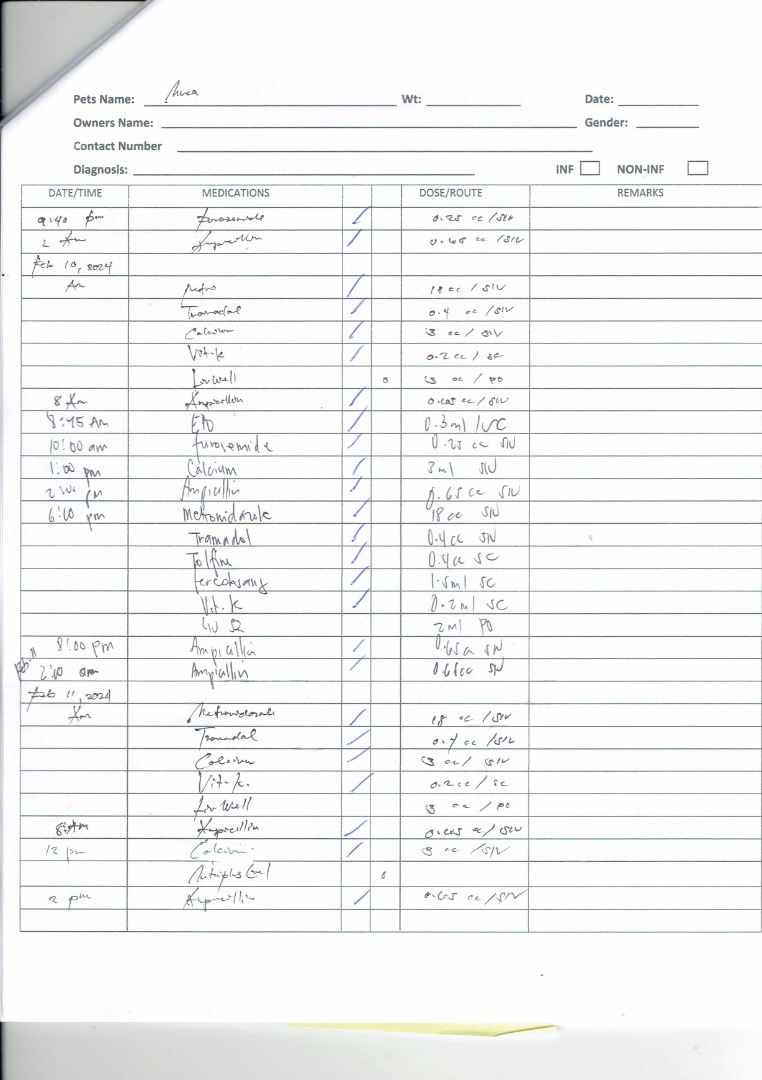 Pets Name: Wt: Date:
Owners Name: Gender:
Contact Number
Diagnosis: INF NON-INF
DATE/TIME MEDICATIONS DOSE/ROUTE REMARKS
9:40 pm Furosemide 0.25 cc /SIV
2 Am Ampicillin 0.65 cc /SIV
Feb 10, 2024
Am Metro 18 cc / SIV
Tramadol 0.4 cc /SIV
Calcium 3 cc / SIV
Vit-K 0.2 cc / SC
LivWell 3 cc / PO
8 Am Ampicillin 0.65 cc / SIV
8:45 Am 0.3 ml /
10:00 am furosemide 0.25 cc SIV
1:00 pm Calcium 3 ml SIV
2:00 pm Ampicillin 0.65 cc SIV
6:00 pm Metronidazole 18 cc SIV
Tramadol 0.4 cc SIV
Tolfine 0.4 cc SC
fercobsang 1.5 ml SC
Vit. K 0.2 ml SC
2 ml PO
8:00 pm Ampicillin 0.65 cc SIV
Feb. 11 2:00 am Ampicillin 0.65 cc SIV
Feb 11, 2024
Am Metronidazole 18 cc /SIV
Tramadol 0.4 cc /SIV
Calcium 3 cc / SIV
Vit-K. 0.2 cc / SC
LivWell 3 cc / PO
8 Am Ampicillin 0.65 cc / SIV
12 pm Calcium 3 cc /SIV
Gel
2 pm Ampicillin 0.65 cc /SIV